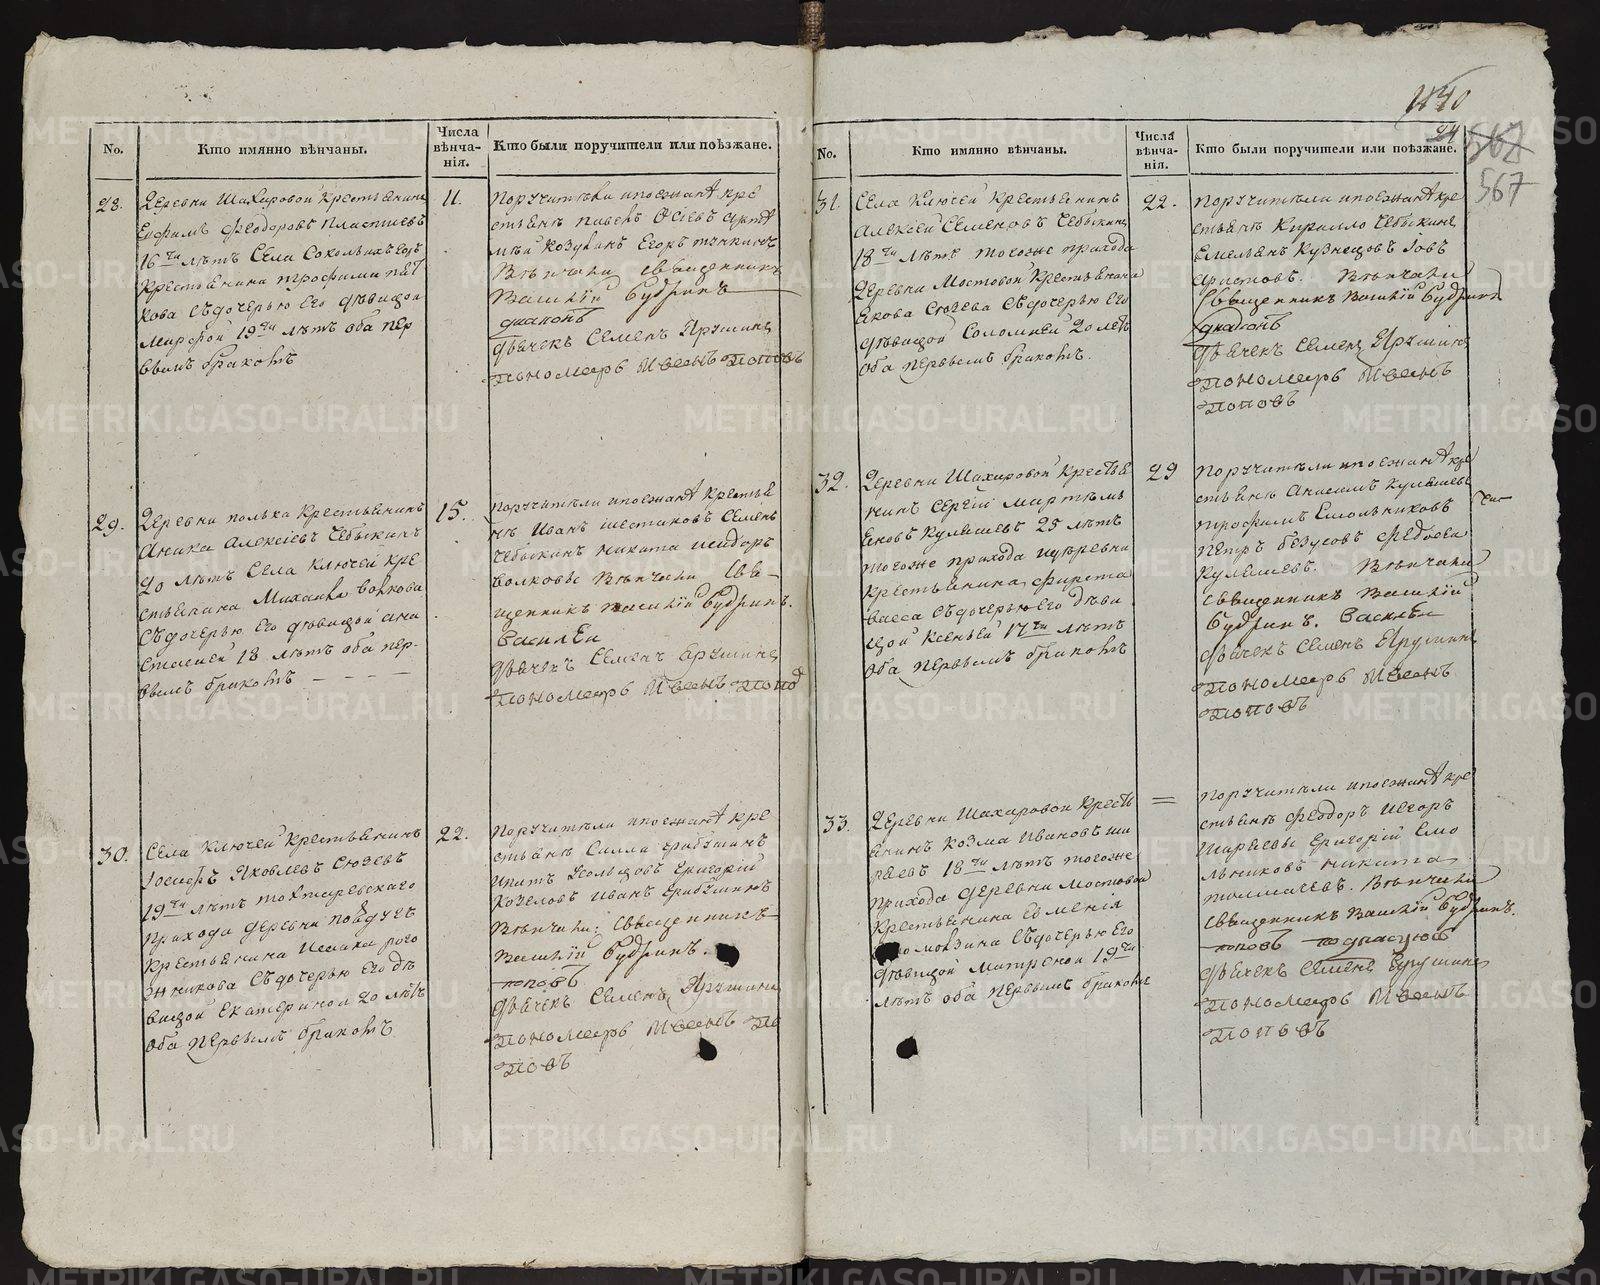 440
24
562
567
No.
Кто имянно вѣнчаны.
Числа вѣнча-нія.
Кто были поручители или поѣзжане.
28.
Деревни Шахировой крестьянинъ
Ефимъ Феодоровъ
16ти лѣтъ села
крестьянина Трофима
кова съ дочерью его дѣвицой
Марфой 19ти лѣтъ оба пер
вымъ бракомъ
11.
Поручители и поезжанѣ кре
стьянѣ Павелъ Осіевъ
Егоръ
Вѣнчали священникъ
Василій Будринъ
диаконъ
дьячекъ Семенъ Ярушинъ
пономарь Иванъ Поповъ
29.
Деревни крестьянинъ
Аника Алексіевъ Чебыкинъ
20 лѣтъ села Ключей кре
стьянина Михаила Волкова
съ дочерью его дѣвицой Ана
стасией 18 лѣтъ оба пер-
вымъ бракомъ
15.
Поручители и поезжанѣ крестья
нѣ Иванъ Шестаковъ Семенъ
Чебыкинъ Никита Исидоръ
Волковы Вѣнчали Свя-
щенникъ Василий Будринъ.
Василей
дьячекъ Семенъ Ярушинъ
пономарь Иванъ Попов
30.
Села Ключей крестьянинъ
Іосифъ Яковлевъ Сюзевъ
19ти лѣтъ
прихода деревни
крестьянина Исаака рого
жникова съ дочерью его дѣ
вицой Екатериной 20 лѣтъ
оба первымъ бракомъ
22.
Поручители и поезжанѣ кре
стьянѣ Силла
Григорій
Козеловъ Иванъ
Вѣнчали: Священникъ
Василій Будринъ.
поповъ
дьячекъ Семенъ Ярушинъ
пономарь Иванъ По
повъ
No.
Кто имянно вѣнчаны.
Числа вѣнча-нія.
Кто были поручители или поѣзжане.
31.
Села Ключей крестьянинъ
Алексій Семеновъ Чебыкинъ
18ти лѣтъ тогоже прихода
Деревни Мостовой крестьянина
Якова Сюзева съ дочерью его
дѣвицой Соломией 20 летъ
оба первымъ бракомъ.
22.
Поручители и поезжанѣ кре
стьянѣ Кирилло Чебыкинъ
Емельянъ Кузнецовъ Іовъ
Аристовъ. Вѣнчали
Священникъ Василій Будринъ
диаконъ
дьячекъ Семенъ Ярушинъ
пономарь Иванъ
Поповъ
32.
Деревни Шахировой крестья
нинъ Сергій Мартемь
яновъ Кулышевъ 25 лѣтъ
тогоже прихода и деревни
крестьянина
съ дочерью его дѣви
цой Ксеньей 17ти лѣтъ
оба первымъ бракомъ
29
Поручители и поезжанѣ кре
стьянѣ Анисимъ Кулышевъ
Трофимъ Смольниковъ
Петръ Безусовъ Федосей
Кулышевъ. Вѣнчали
Священникъ Василій
Будринъ. Василей
дьячекъ Семенъ Ярушинъ
пономарь Иванъ
Поповъ
33.
Деревни Шахировой кресть
янинъ Козма Ивановъ Ши
ряевъ 18ти лѣтъ тогоже
прихода деревни Мостовой
крестьянина Евмения
съ дочерью его
дѣвицой Матреной 19ти
лѣтъ оба первымъ бракомъ
=
Поручители и поезжанѣ кре
стьянѣ Феодоръ Исидоръ
Ширяевы Григорій Смо
льниковъ Никита
Толмачевъ. Вѣнчали
Священникъ Василій Будринъ.
поповъ
дьячекъ Семенъ Ярушинъ
пономарь Иванъ
Поповъ
METRIKI.GASO-URAL.RU